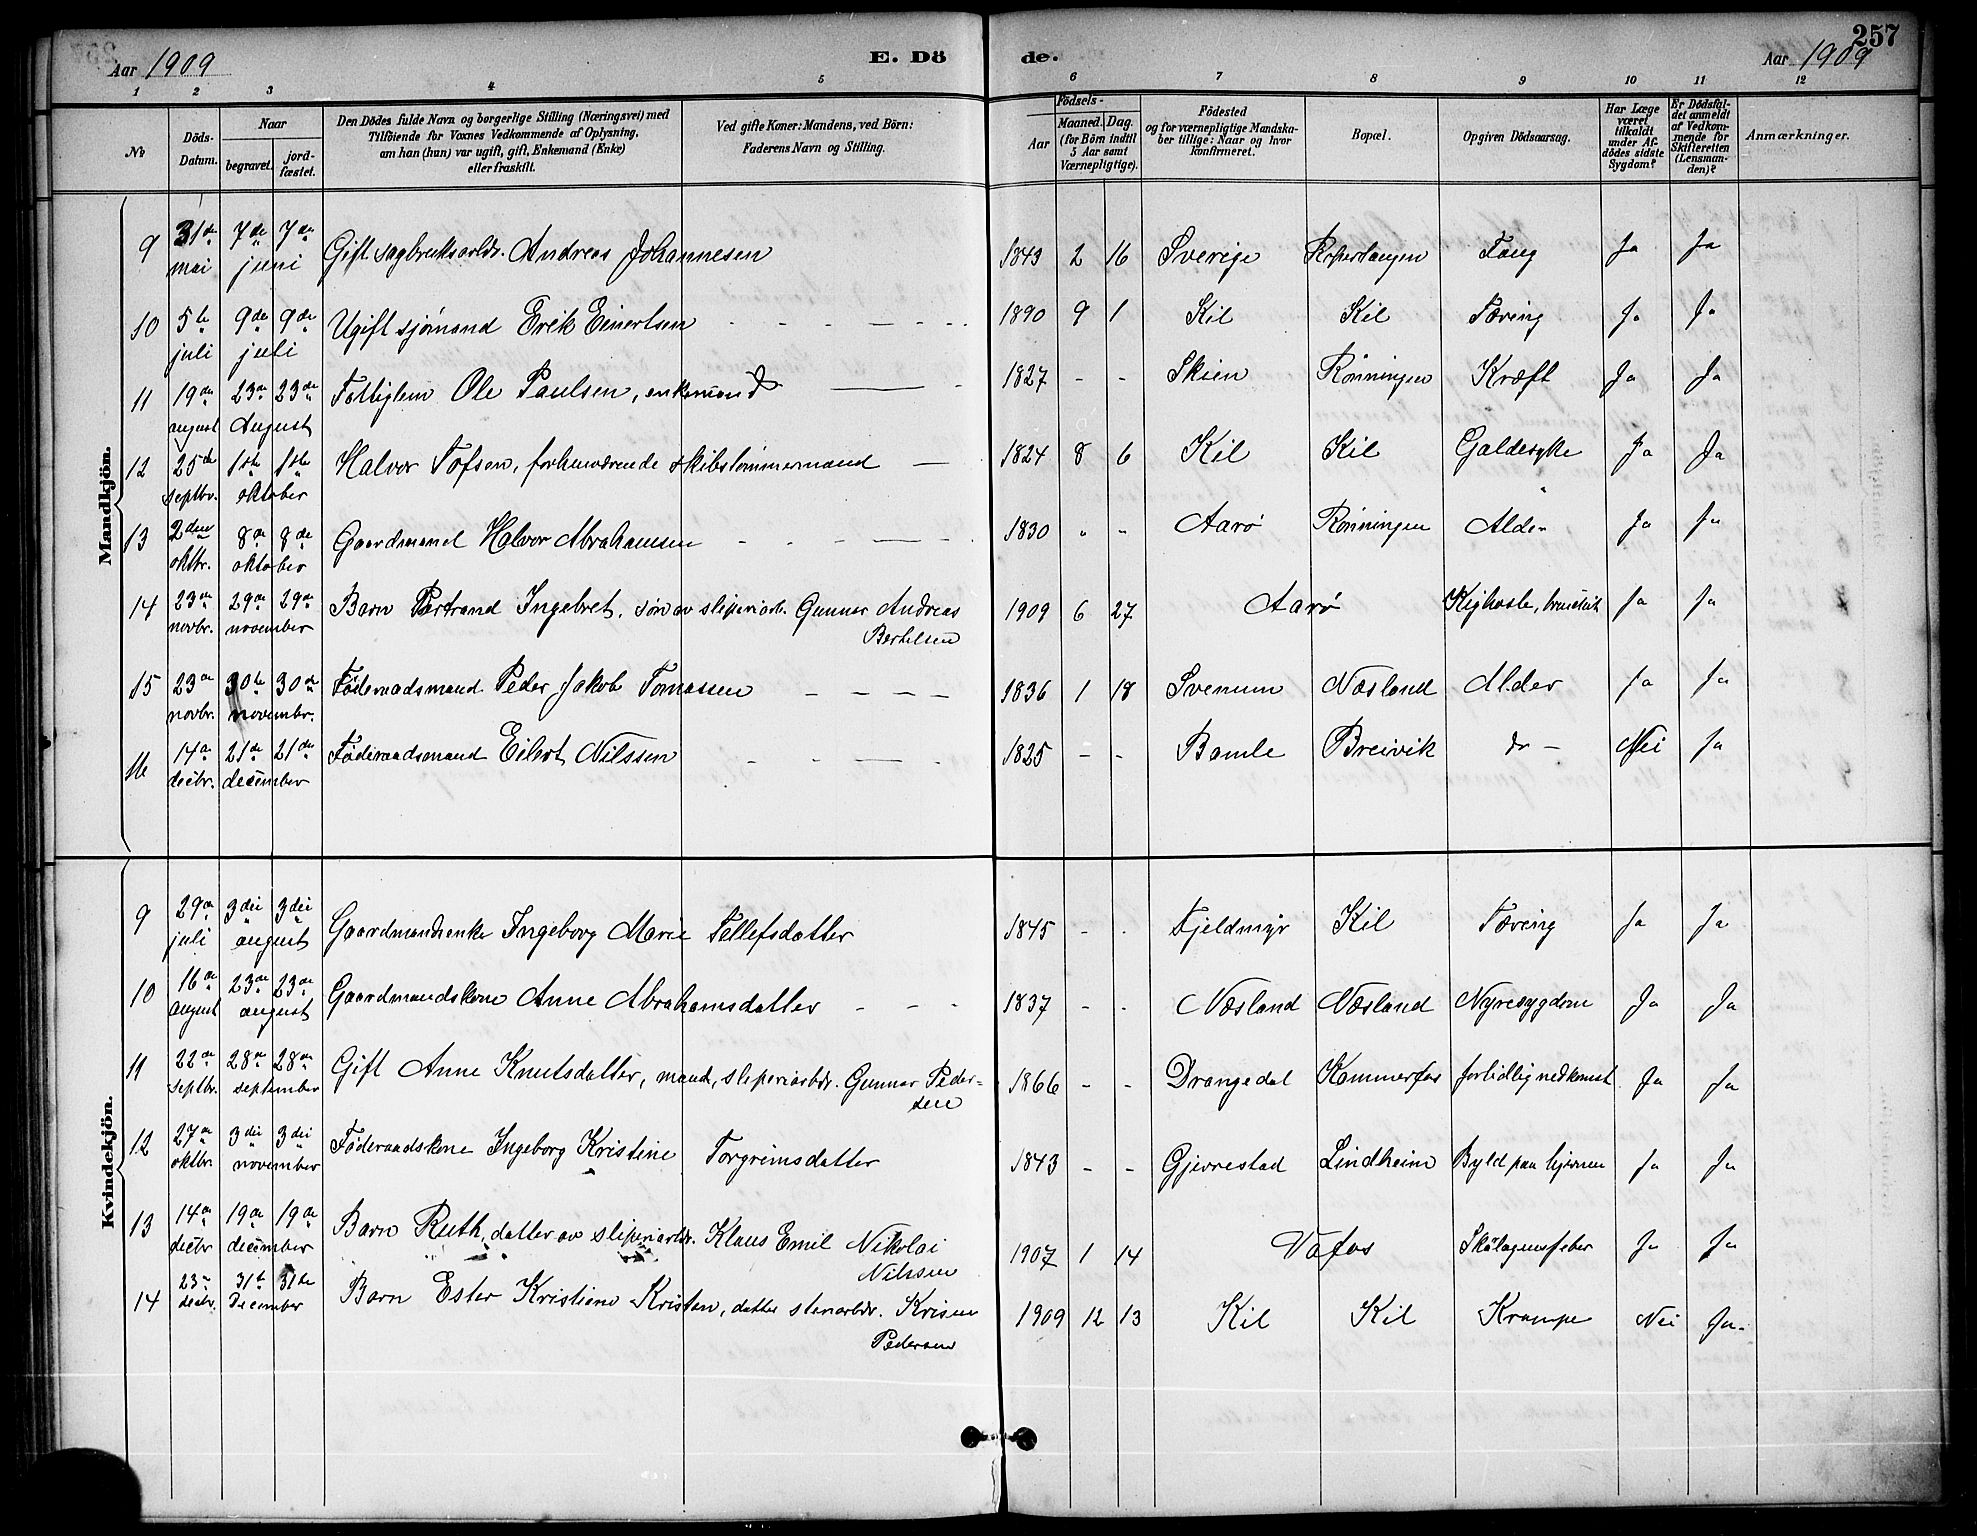 257
Aar 1909 E. Dö de. Aar 1909
1 2 3 4 5 6 7 8 9 10 11 12
No Döds-Datum. Naar begravet. jord-fæstet. Den Dödes fulde Navn og borgerlige Stilling (Næringsvei) med Tilföiende for Voxnes Vedkommende af Oplysning, om han (hun) var ugift, gift, Enkemand (Enke) eller fraskilt. Ved gifte Koner: Mandens, ved Börn: Faderens Navn og Stilling. Födsels- Aar Maaned. Dag. (for Börn indtil 5 Aar samt Værnepligtige). Födested og for værnepligtige Mandska-ber tillige: Naar og hvor konfirmeret. Bopæl. Opgiven Dödsaarsag. Har Læge været tilkaldt under Af-dödes sidste Sygdom? Er Dödsfal-det anmeldt af Vedkom-mende for Skifteretten (Lensman-den)? Anmærkninger.
Mandkjön.
9 31te mai 7de 7de juni Gift sagbruksarbdr. Andreas Johannesen 1843 2 16 Sverige Ja Ja
10 5te juli 9de 9de juli Ugift sjømand Erik Einertsen 1890 9 1 Kil Kil Tæring Ja Ja
11 19de august 23de 23de August Fattiglem Ole Paulsen, enkemand 1827 - - Skien Rønningen Kræft Ja Ja
12 25de septbr. 1ste 1ste oktober Halvor Tofsen, forhenværende skibstømmermand 1824 8 6 Kil Kil Galdesyke Ja Ja
13 2den oktbr. 8de 8de oktober Gaardmand Halvor Abrahamsen 1830 " - Aarø Rønningen Alder Ja Ja
14 23de novbr. 29de 29de november Barn Ingebret, søn av sliperiarb. Gunnar Andreas Bertelsen 1909 6 27 Aarø Kighoste, Ja Ja
15 23de novbr. 30te 30de novembr. Føderaadsmand Peder Jakob Tomassen 1836 1 18 Svenum Næsland Alder Ja Ja
16 14de decbr. 21de 21de december Føderaadsmand Eilert Nilssen 1825 - - Bamle Breivik do - Nei Ja
Kvindekjön.
9 29de juli 3dei 3dei august Gaardmandsenke Ingeborg Marie Tellefsdatter 1845 - - Fjeldmyr Kil Tæring Ja Ja
10 16de august 23de 23de august Gaardmandskone Anne Abrahamsdatter 1837 - - Næsland Næsland Nyresygdom Ja Ja
11 22de septbr. 28de 28de september Gift Anne Knutsdatter, mand, sliperiarbdr. Gunnar Peder-sen 1866 - - Drangedal Kammerfos fortidlig nedkomst Ja Ja
12 27de oktbr. 3dei 3dei november Føderaadskone Ingeborg Kristine Torgrimsdatter 1843 - - Gjerrestad Lindheim Byld paa hjernen Ja Ja
13 14de decbr 19de 19de december Barn Ruth, datter av sliperiarbdr. Klaus Emil Nikolai Nilssen 1907 1 14 Vafos Skålagensfeber Ja Ja
14 23de decbr. 31te 31te December Barn Ester Kristiane datter stenarbdr. Pedersen 1909 12 13 Kil Kil Krampe Nei Ja.